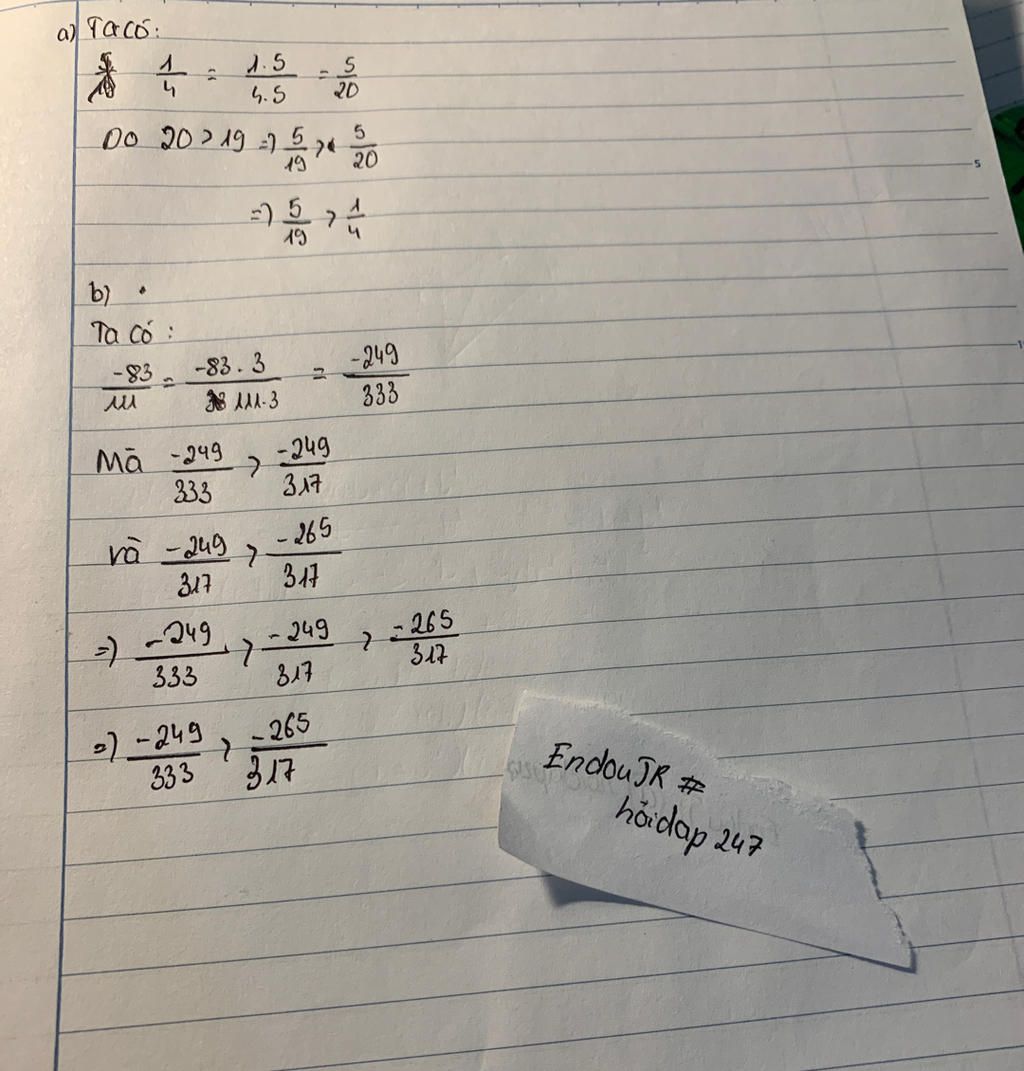 a) Ta có:
1/4 = 1.5/4.5 = 5/20
Do 20 > 19 => 5/19 > 5/20
=> 5/19 > 1/4
b)
Ta có:
-83/111 = -83.3/111.3 = -249/333
Mà -249/333 > -249/317
và -249/317 > -265/317
=> -249/333 > -249/317 > -265/317
=> -249/333 > -265/317
EndouJR #
hỏidap 247
5